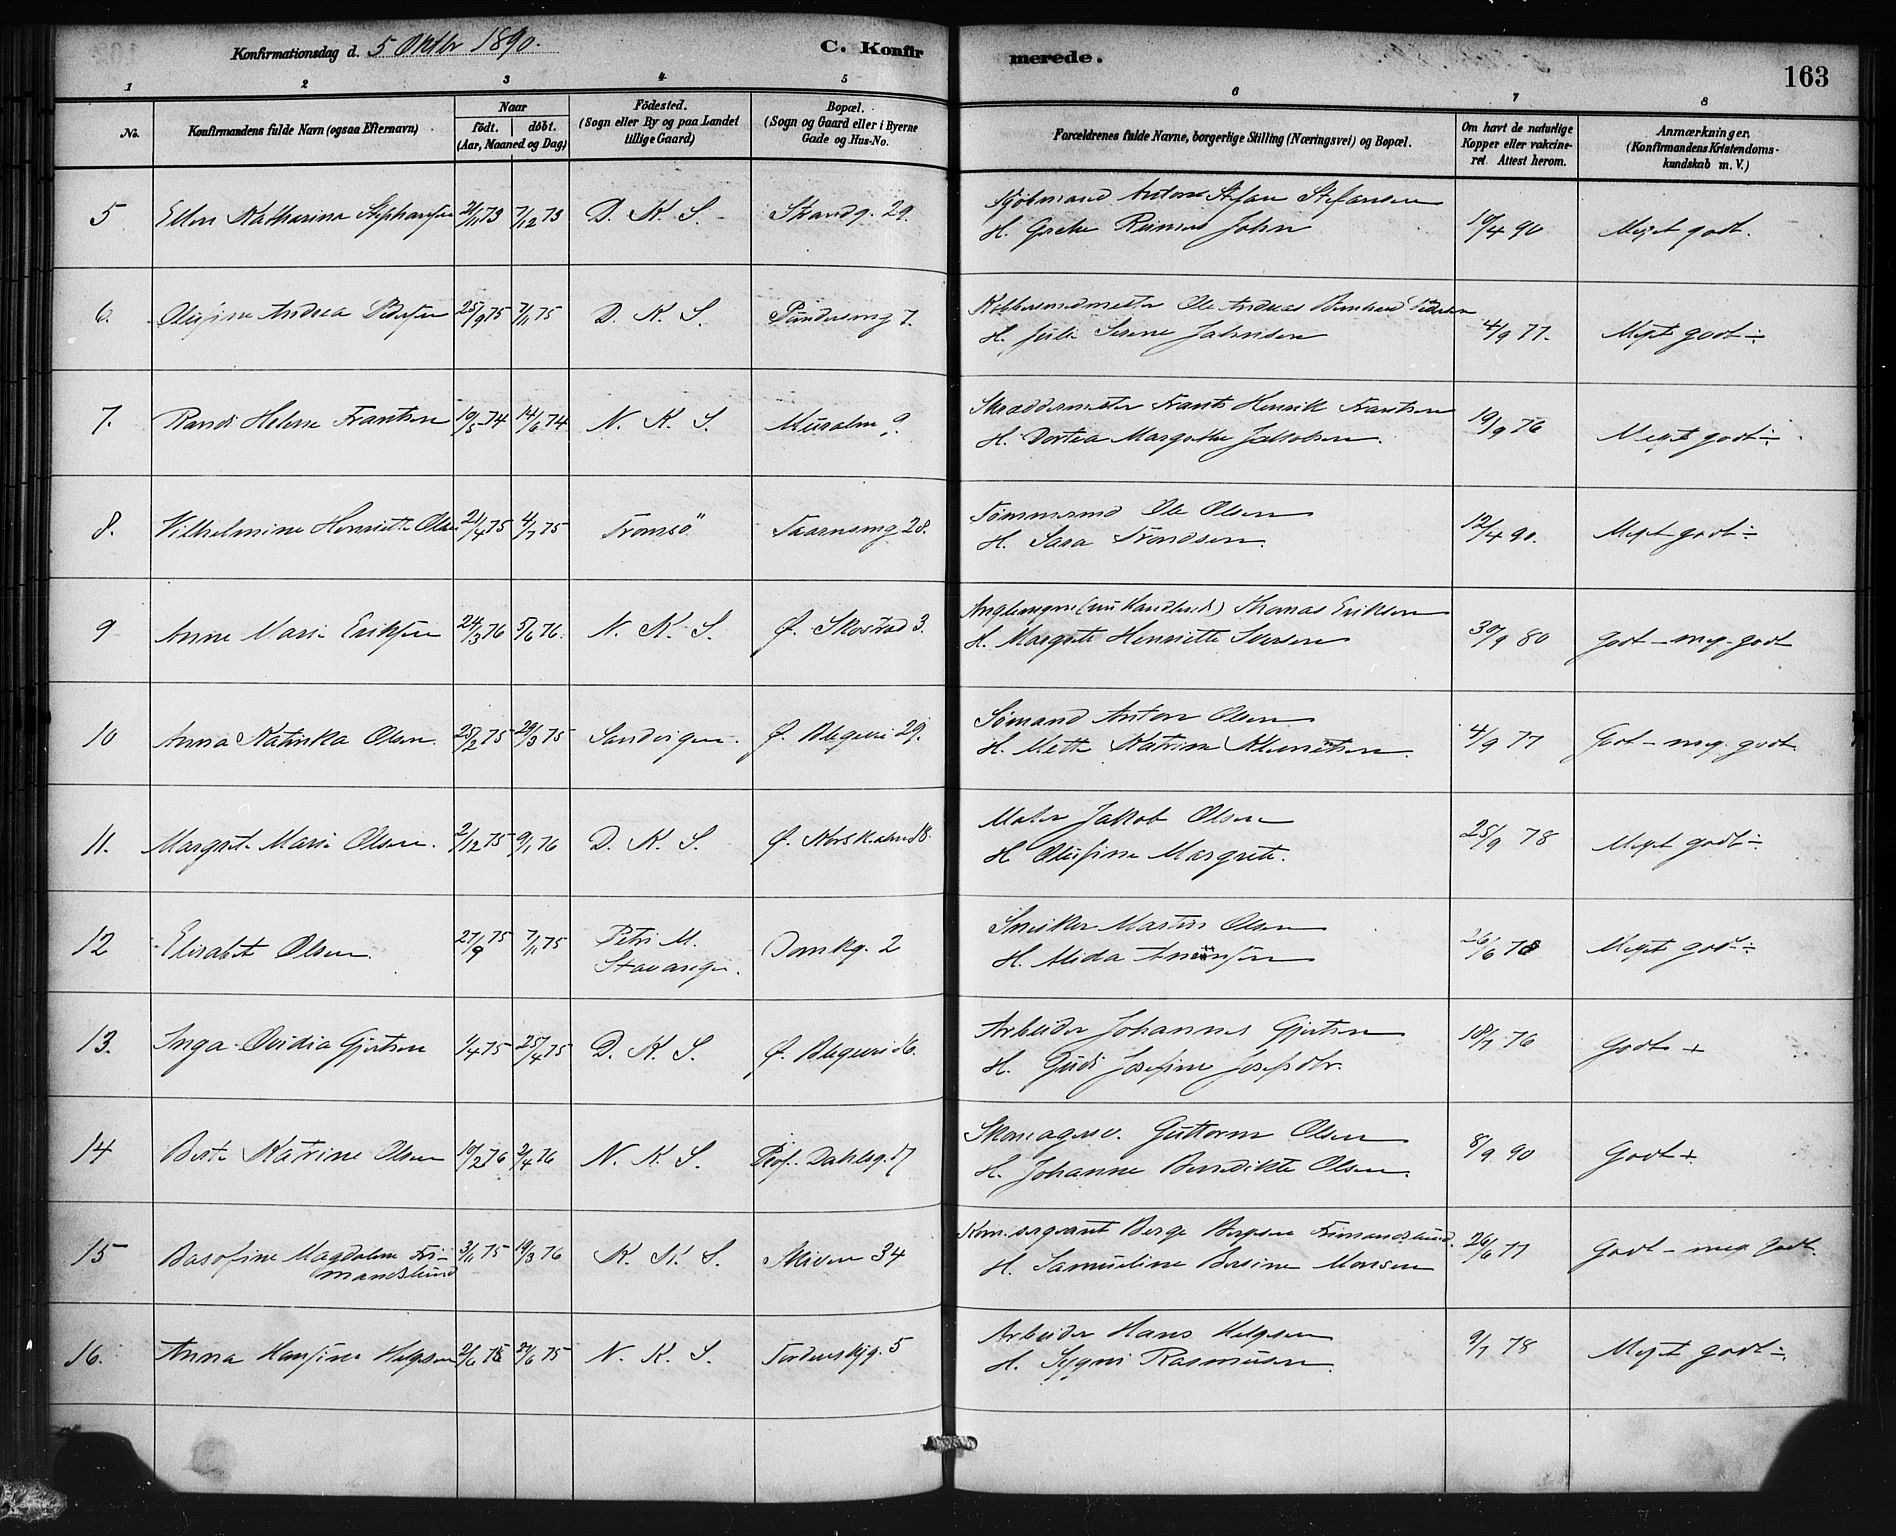 Konfirmationsdag d. 5 Oktbr 1890. C. Konfirmerede. 163
1 2 3 4 5 6 7 8
No. Konfirmandens fulde Navn (ogsaa Efternavn) Naar født. døbt. (Aar, Maaned og Dag) Fødested. (Sogn eller By og paa Landet tillige Gaard) Bopæl. (Sogn og Gaard eller i Byerne Gade og Hus-No. Forældrenes fulde Navne, borgerlige Stilling (Næringsvei) og Bopæl. Om havt de naturlige Kopper eller vakcineret. Attest herom. Anmærkninger. (Konfirmandens Kristendomskundskab m. V.)
5 Ellen Katharina Stephansen 73 7/12 73 D. K. S. Strandg. 29. Kjøbmand Anton Stefan Stefansen
H. Grethe Reimers John 10/4 90 Meget godt.
6. Olufine Andrea Pedersen 25/9 75 7/11 75 D. K. S. 7. Ole Andreas Bernhard Pedersen
H. Julie Serene Johnsen 4/9 77. Meget godt ÷
7. Randi Helene Frantsen 10/5 74 14/6 74 N. K. S. 9. Skræddermester Frants Henrik Frantsen
H. Dortea Margrethe Jakobsen. 19/9 76 Meget godt ÷
8. Vilhelmine Henriette Olsen 21/4 75 4/7 75 Tromsø Taarnsmg 28. Tømmermd Ole Olsen
H. Sara Trondsen. 12/4 90. Meget godt ÷
9 Anne Marie Eriksen 24/3 76 5/6 76. N. K. S. Ø. Skostræd 3. (nu Handlende) Thomas Eriksen
H. Margrete Henriette Iversen 30/9 80 Godt – meg. godt
10 Anna Katinka Olsen. 25/2 75 29/3 75 Sandvigen. Ø. Blegevei 29. Sømand Anton Olsen
H. Mette Katrine Klemetsen. 4/9 77 Godt – meg. godt
11. Margret Marie Olsen. 2/12 75 9/1 76 D. K. S. Ø. Maler Jakob Olsen
H. Olufine Margrete. 25/9 78 Meget godt ÷
12 Elisabet Olsen. 27/9 75 7/11 75 Petri M. Stavanger. Domkg. 2 Snedker Martin Olsen
H. Alida 26/6 Meget godt ÷
13. Inga Ovidia Gjertsen 1/4 75 25/4 75 D. K. S. Ø. Blegevei 16. Arbeider Johannes Gjertsen
H. Gudi Josefine Josefsdtr. 18/7 76 Godt +
14 Berte Katrine Olsen 10/2 76 2/4 76 N. K. S. Prof. Dahlsg. 17 Skomagersv. Guttorm Olsen
H. Johanne Benedikte Olsen. 8/9 90 Godt +
15 Basofine Magdalene Frimandslund 3/11 75 19/3 76 K. K. S. Skiven 34 Børge Frimandslund.
H. Samueline Bersine Monsen 26/6 77 Godt – meg. godt.
16. Anna Hansine Helgesen 2/6 75 27/6 75 N. K. S. Tordenskjg. 5 Arbeider Hans Helgesen
H. Sygni Rasmussen. 9/7 78 Meget godt ÷